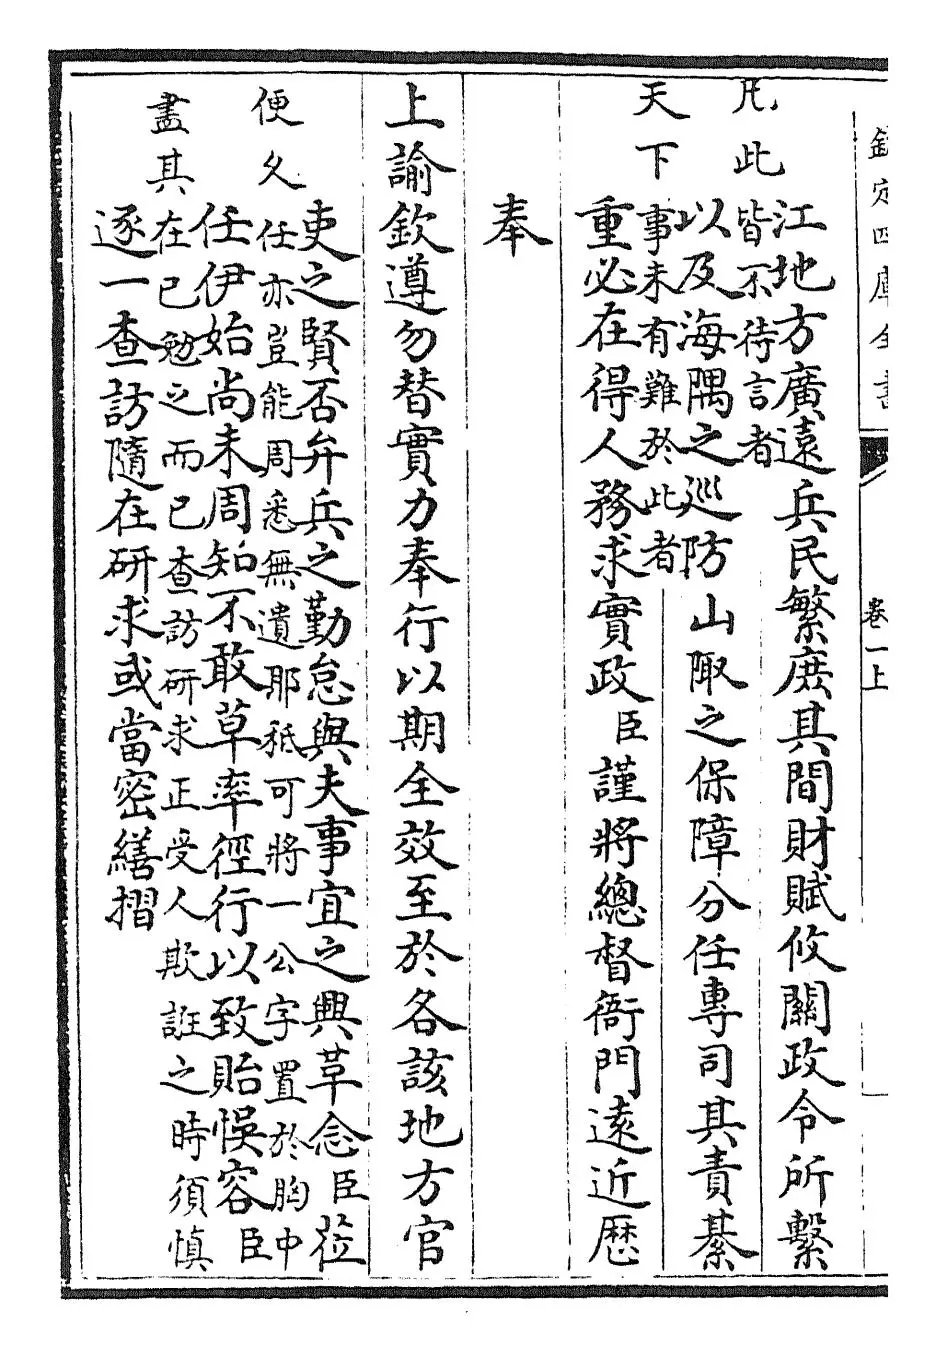 欽定四庫全書
卷一上
江地方廣遠兵民繁庶其間財賦攸關政令所繫
凡此皆不待言者
以及海隅之巡防山陬之保障分任專司其責綦
天下事未有難於此者
重必在得人務求實政臣謹將總督衙門遠近歷
奉
上諭欽遵勿替實力奉行以期全效至於各該地方官
吏之賢否弁兵之勤怠與夫事宜之興革念臣莅
便久任亦豈能周悉無遺耶秪可將一公字置於胸中
任伊始尚未周知不敢草率徑行以致貽悞容臣
盡其在已勉之而已查訪研求正受人欺誑之時須慎
逐一查訪隨在研求或當密繕摺